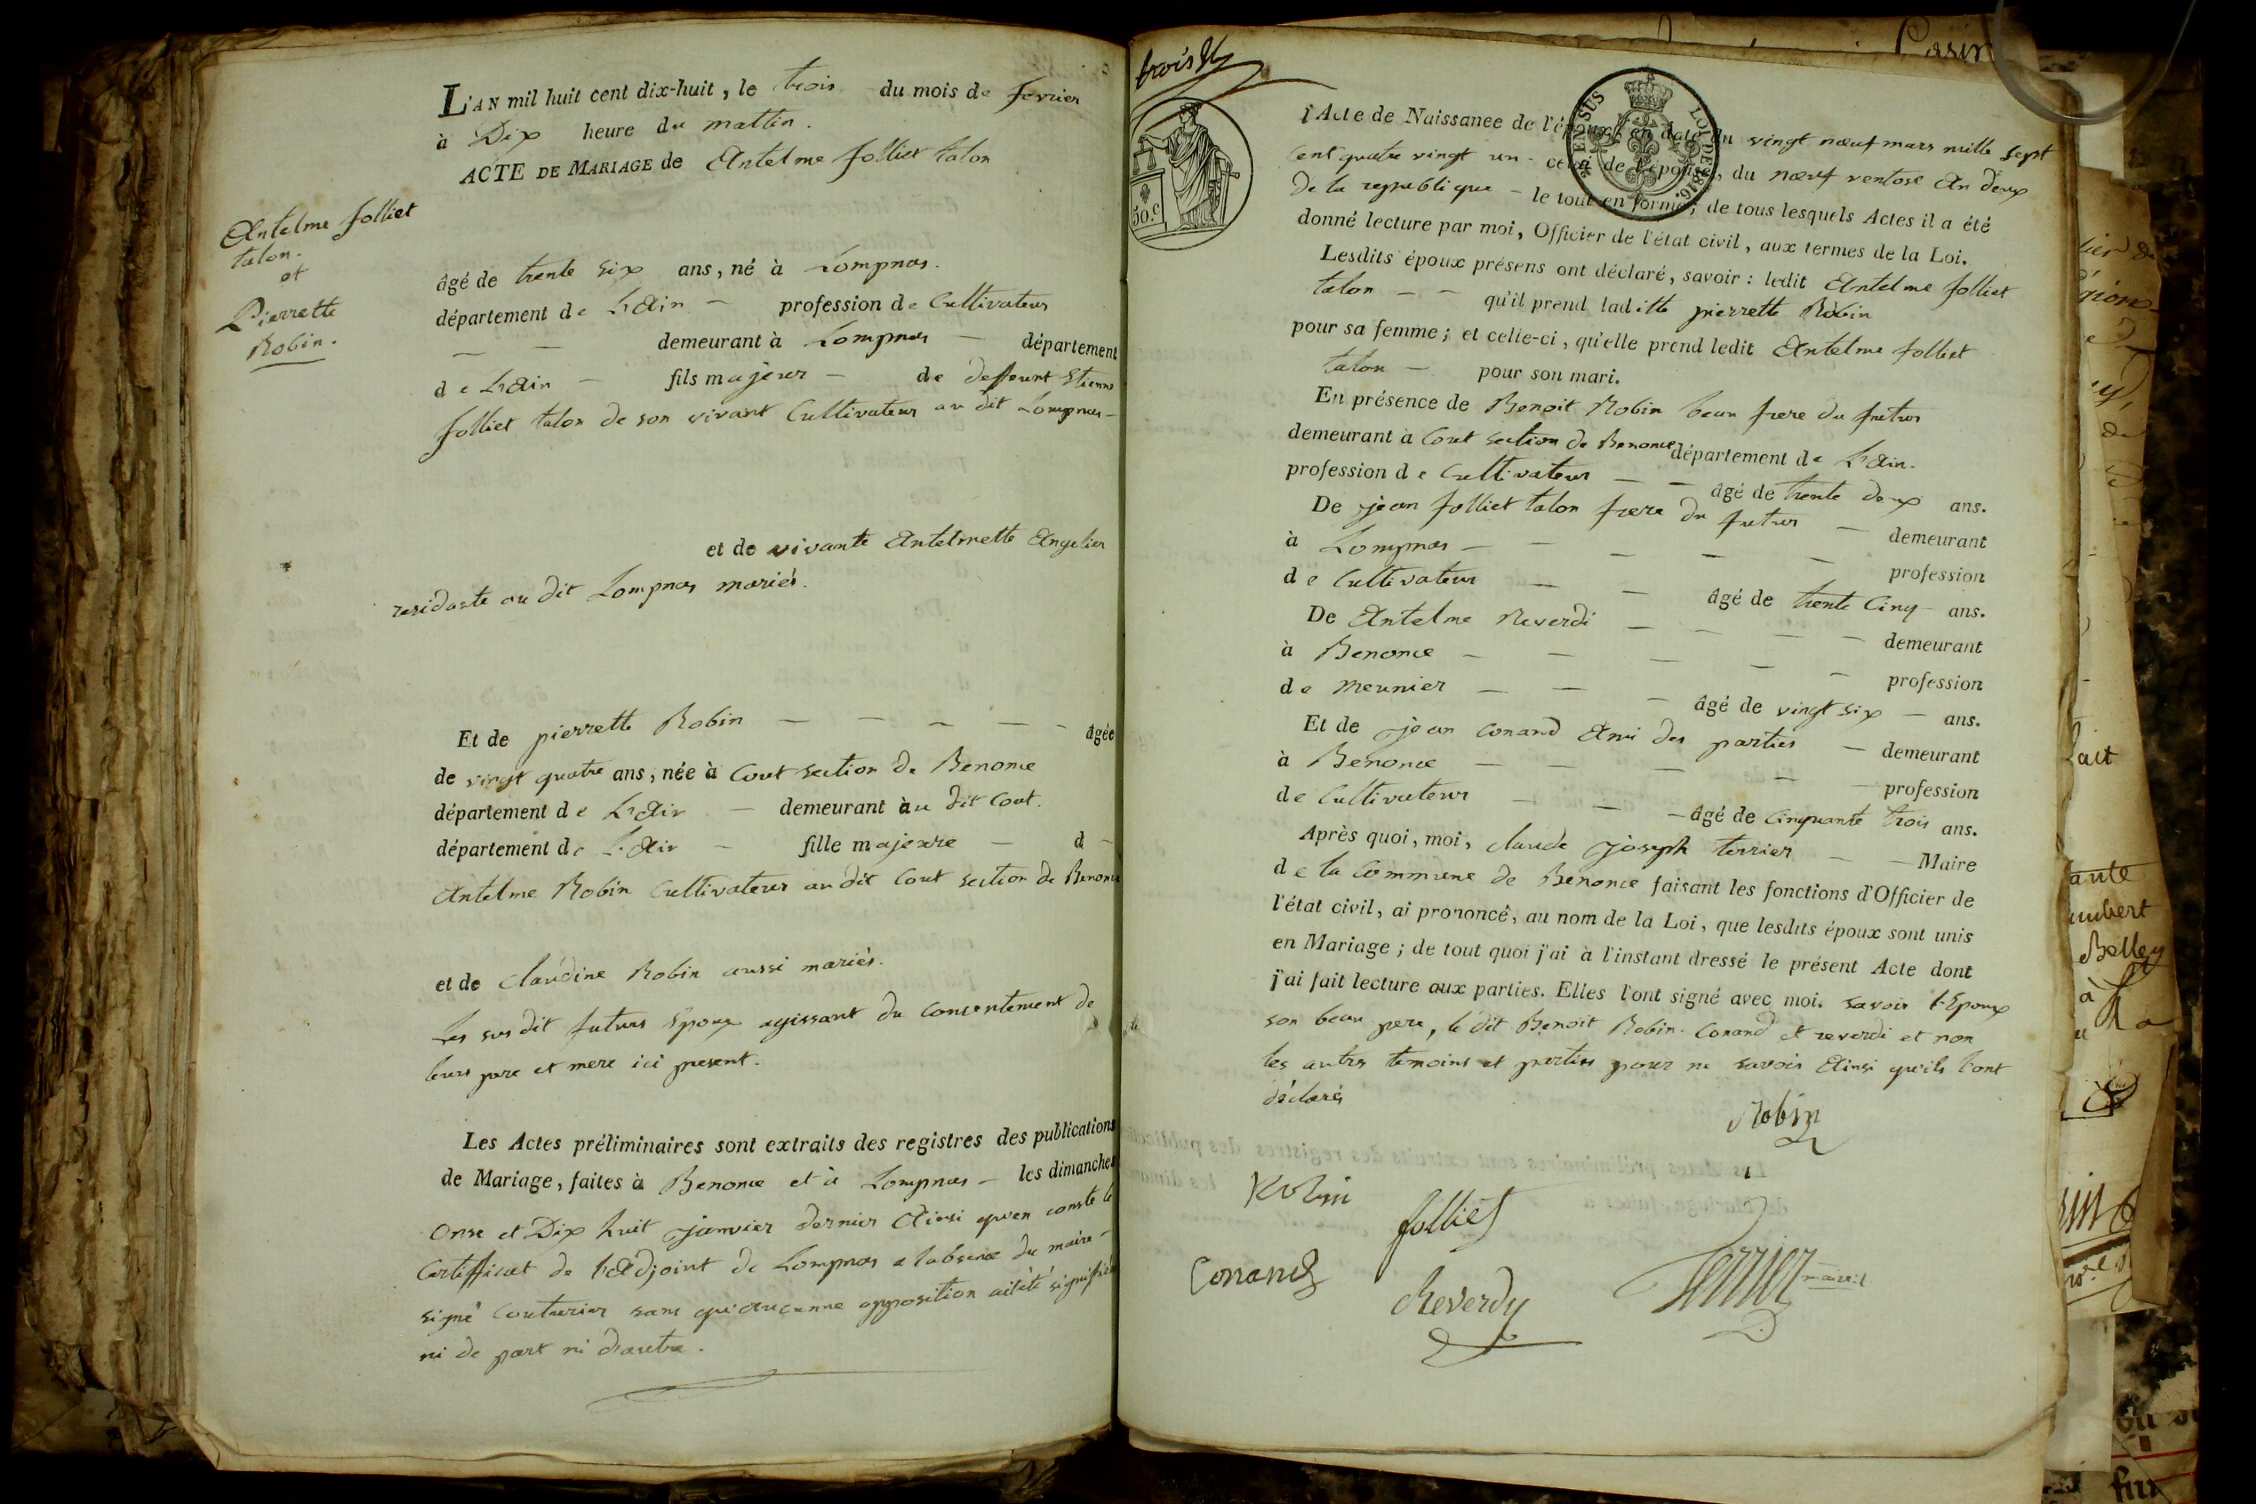 L'AN mil huit cent dix-huit, le trois du mois de fevrier
à Dix heure du mattin.
ACTE DE MARIAGE de Antelme folliet talon
Antelme folliet
talon.
et
Pierrette
Robin.
âgé de trente six ans, né à Lompnas.
département de L'Ain — profession de Cultivateur
— — demeurant à Lompnas — département
de L'Ain — fils majeur — de deffeunt Etienne
folliet talon de son vivant Cultivateur au dit Lompnas —
et de vivante Antelmette Angelier
residante au dit Lompnas mariés.
Et de pierrette Robin — — — — - âgée
de vingt quatre ans, née à Cout section de Benonce
département de L'Ain — demeurant àu dit Cout.
département de L'Ain — fille majeure — d —
Antelme Robin Cultivateur au dit Cout section de Benonce
et de Claudine Robin aussi mariés.
Les sus dit futurs Epoux agissant du Consentement de
leurs pere et mere ici present.
Les Actes préliminaires sont extraits des registres des publications
de Mariage, faites à Benonce et à Lompnas — les dimanches
Onse et Dix huit janvier dernier Ainsi qu'en conste le
Certifficat de l'Adjoint de Lompnas a labsence du maire —
signé Couturier sans qu'aucunne opposition aitété signifié
ni de part ni d'autre.
trois
50.c
EN SUS
LOI DE 1816
l'Acte de Naissance de l'époux, en date du vingt nœuf mars mille sept
Cent quatre vingt un - celui de l'épouse, du nœuf ventose An deux
De la republique — le tout en forme; de tous lesquels Actes il a été
donné lecture par moi, Officier de l'état civil, aux termes de la Loi.
Lesdits époux présens ont déclaré, savoir: ledit Antelme folliet
talon — — qu'il prend laditte pierrette Robin
pour sa femme; et celle-ci, qu'elle prend ledit Antelme folliet
talon — pour son mari.
En présence de Benoit Robin beau frere du futur
demeurant à Cout section de Benonce département de L'Ain.
profession de Cultivateur — — âgé de trente deux ans.
De jean folliet talon frere du futur — demeurant
à Lompnas — — — — — profession
de Cultivateur — — âgé de trente Cinq — ans.
De Antelme Reverdi — — — — demeurant
à Benonce — — — — — profession
de meunier — — — âgé de vingt six — ans.
Et de jean Conand Ami des parties — demeurant
à Benonce — — — — — profession
de Cultivateur — — — âgé de Cinquante trois ans.
Après quoi, moi, claude joseph terrier — — Maire
de la Commune de Benonce faisant les fonctions d'Officier de
l'état civil, ai prononcé, au nom de la Loi, que lesdits époux sont unis
en Mariage; de tout quoi j'ai à l'instant dressé le présent Acte dont
j'ai fait lecture aux parties. Elles l'ont signé avec moi. savoir l'Epoux
son beau pere, le dit Benoit Robin. Conand et reverdi et non
les autres temoins et parties pour ne savoir Ainsi qu'ils l'ont
déclaré
Robin
Robin
folliet
Conand
Reverdy
Terrier maire
Belley